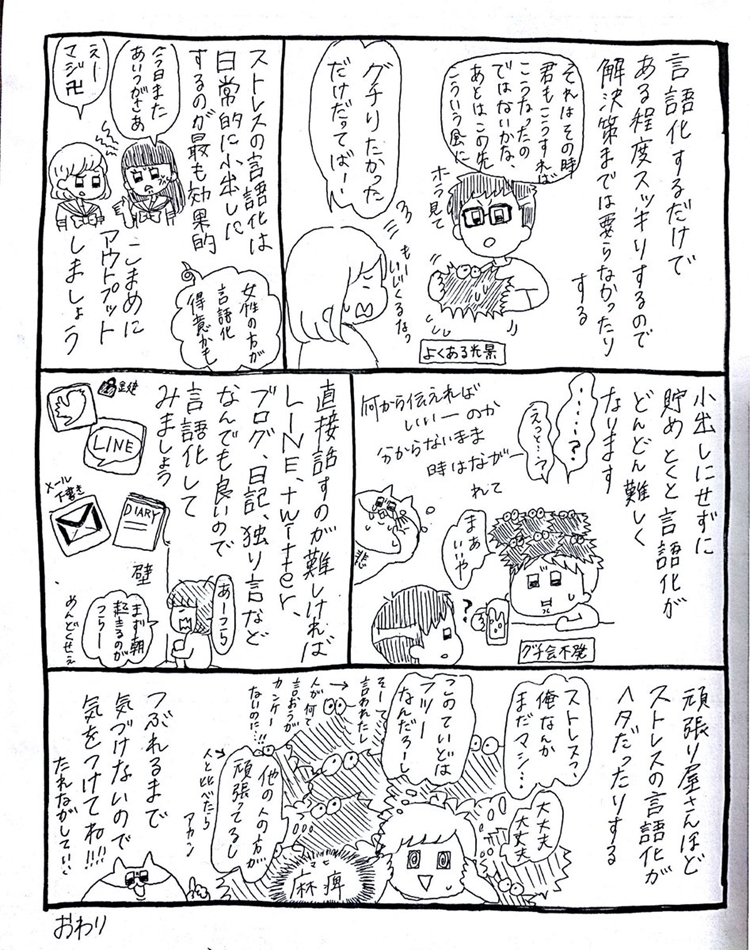 言語化するだけで
ある程度スッキリするので
解決策までは要らなかったり
する
それはその時
君もこうすれば
こうなったの
ではないかな、
あとはこの先
こういう風に
ホラ見て
グチりたかった
だけだってばー!
もーいじくるなっ
よくある光景
ストレスの言語化は
日常的に小出しに
するのが最も効果的
今日また
あいつがさあ
えー
マジ卍
こまめに
アウトプット
しましょう
女性の方が
言語化
得意かも
小出しにせずに
貯めとくと言語化が
どんどん難しく
なります
・・・・・?
えっと…?
何から伝えれば
いいーのか
分からないまま
時はながー
れて
まぁ
いいや
悲
?
グチ会不発
直接話すのが難しければ
LINE、twitter、
ブログ、日記、独り言など
なんでも良いので
言語化して
みましょう
鍵
LINE
メール
下書き
DIARY
壁
あーつら
まず朝
起きるのが
つらー
めんどくせぇ
頑張り屋さんほど
ストレスの言語化が
ヘタだったりする
ストレスっ、
俺なんか
まだマシ…
大丈夫
大丈夫
このていどは
フツー
なんだろー!
そーて
言われたし
人が何て
言おうが
カンケー
ないのに…!!
他の人の方が
頑張ってるし
人と比べたら
アカン
マヒ
麻痺
つぶれるまで
気づけないので
気をつけてね!!!
たれながしていこ
おわり